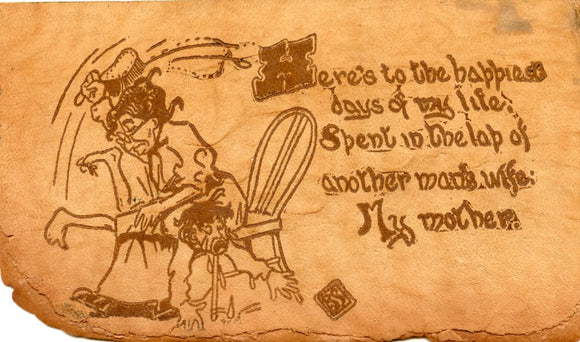 Here's to the happiest
days of my life;
Spent in the lap of
another man's wife:
My mother.